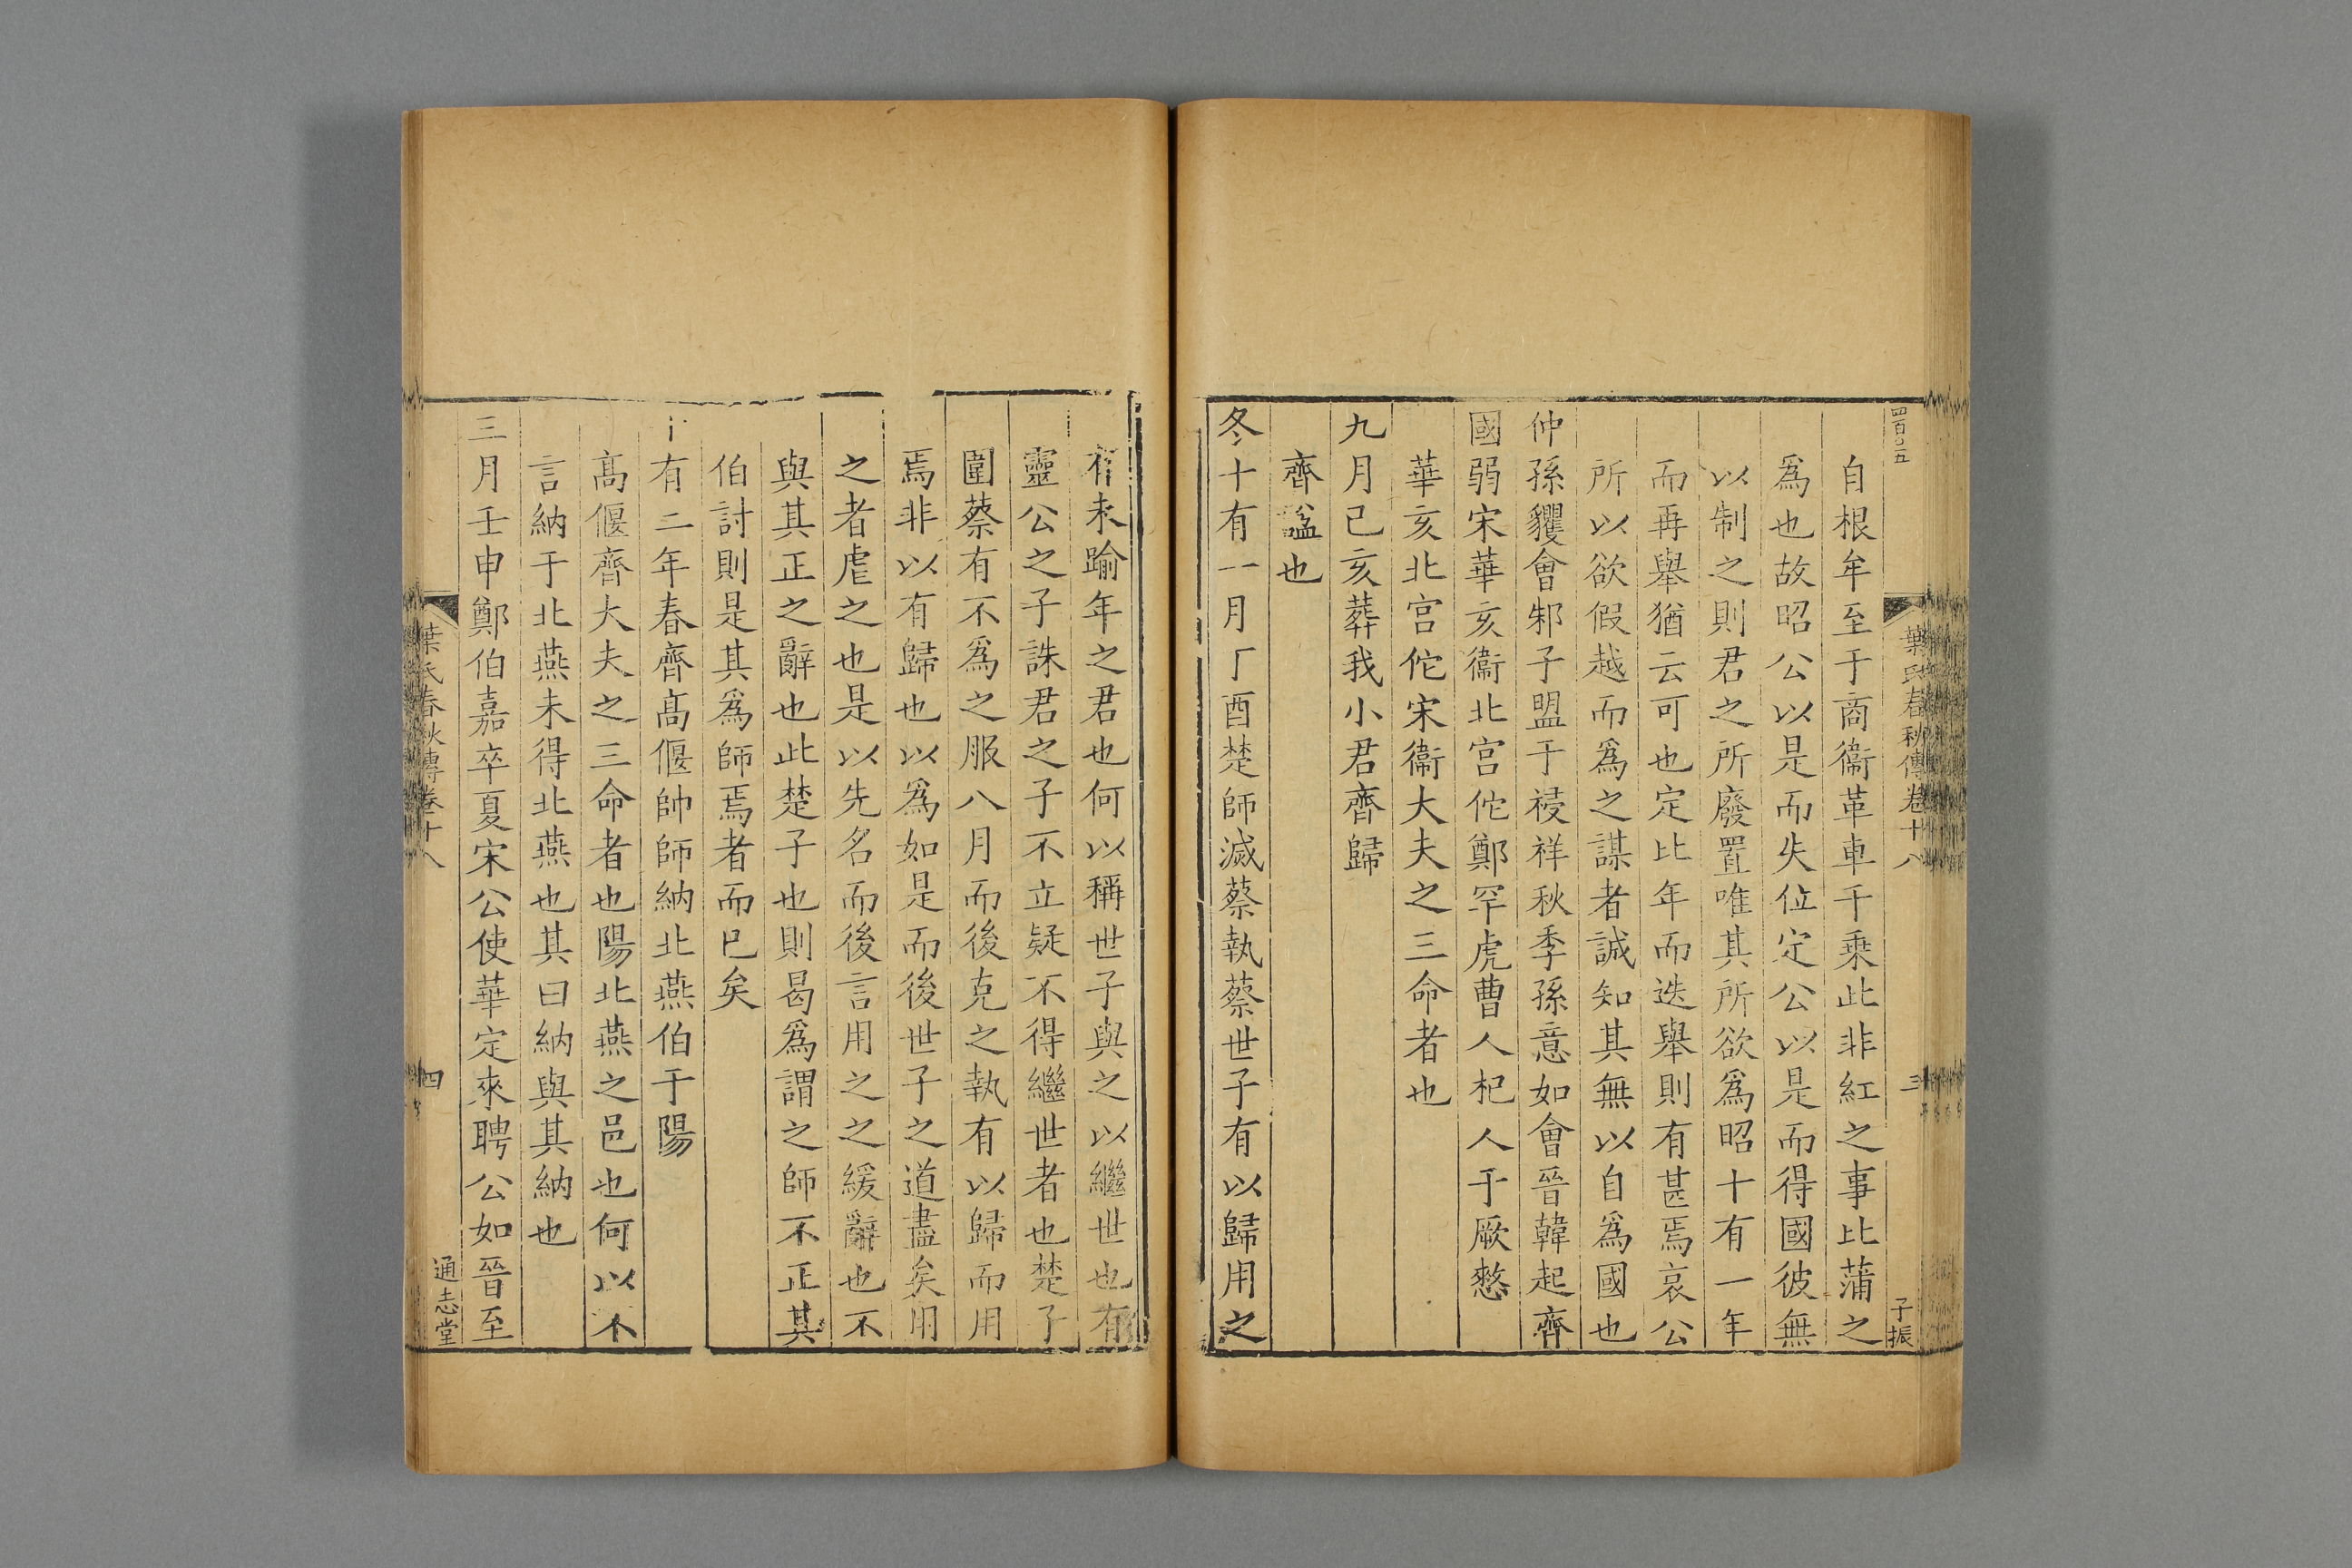 四百〇五
葉氏春秋傳卷十八
三
子振
自根牟至于商衞革車千乗此非紅之事比蒲之
爲也故昭公以是而失位定公以是而得國彼無
以制之則君之所廢置唯其所欲爲昭十有一年
而再舉猶云可也定比年而迭舉則有甚焉哀公
所以欲假越而爲之謀者誠知其無以自爲國也
仲孫貜會邾子盟于祲祥秋季孫意如會晉韓起齊
國弱宋華亥衞北宫佗鄭罕虎曹人杞人于厥憖
華亥北宫佗宋衞大夫之三命者也
九月己亥葬我小君齊歸
齊諡也
冬十有一月丁酉楚師滅蔡執蔡世子有以歸用之
有未踰年之君也何以稱世子與之以繼世也有
靈公之子誅君之子不立疑不得繼世者也楚子
圍蔡有不爲之服八月而後克之執有以歸而用
焉非以有歸也以爲如是而後世子之道盡矣用
之者虐之也是以先名而後言用之之緩辭也不
與其正之辭也此楚子也則曷爲謂之師不正其
伯討則是其爲師焉者而已矣
十有二年春齊髙偃帥師納北燕伯于陽
髙偃齊大夫之三命者也陽北燕之邑也何以不
言納于北燕未得北燕也其曰納與其納也
三月壬申鄭伯嘉卒夏宋公使華定來聘公如晉至
葉氏春秋傳卷十八
四
通志堂